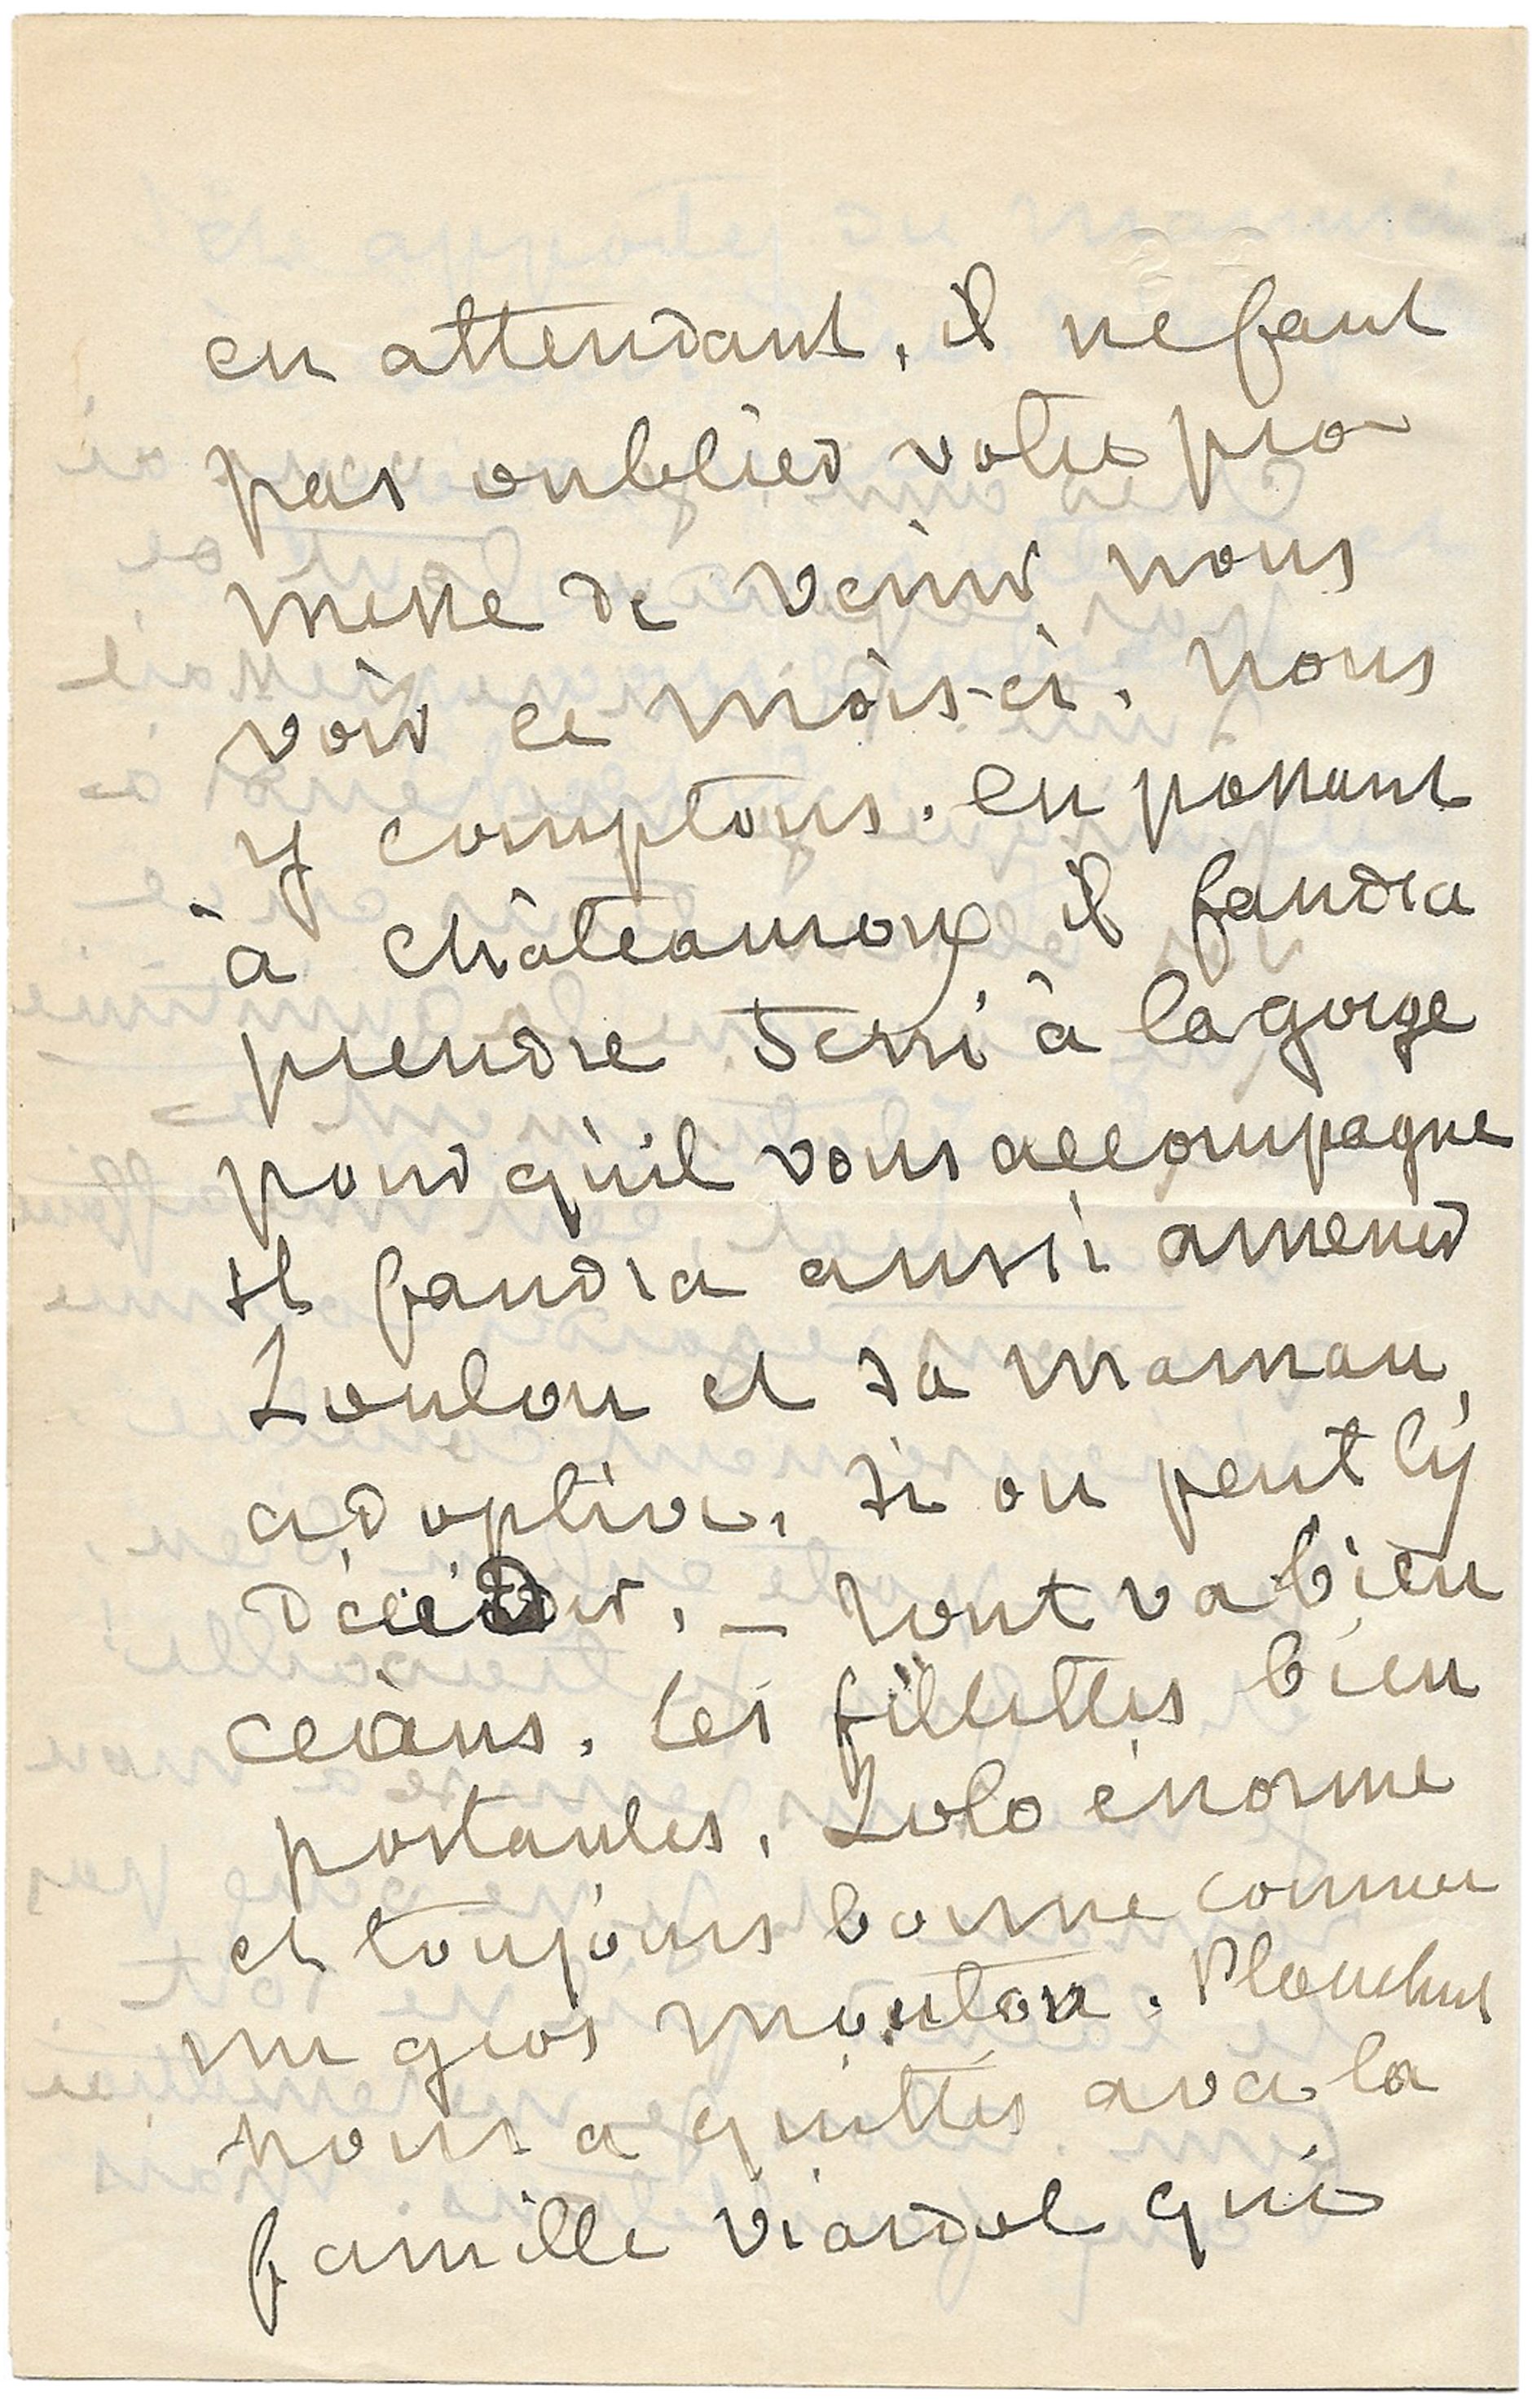 en attendant, il ne faut
pas oublier votre pro
messe de venir nous
voir ce mois-ci. nous
y comptons. en passant
à chateauroux, il faudra
prendre Terri à la gorge
pour qu'il vous accompagne
il faudra aussi amener
Loulou et sa maman
adoptive, si on peut l'y
décider. — tout va bien
céans. les fillettes bien
portantes. Lolo énorme
et toujours bonne comme
un gros mouton. Plauchut
nous a quittés avec la
famille viardot qui